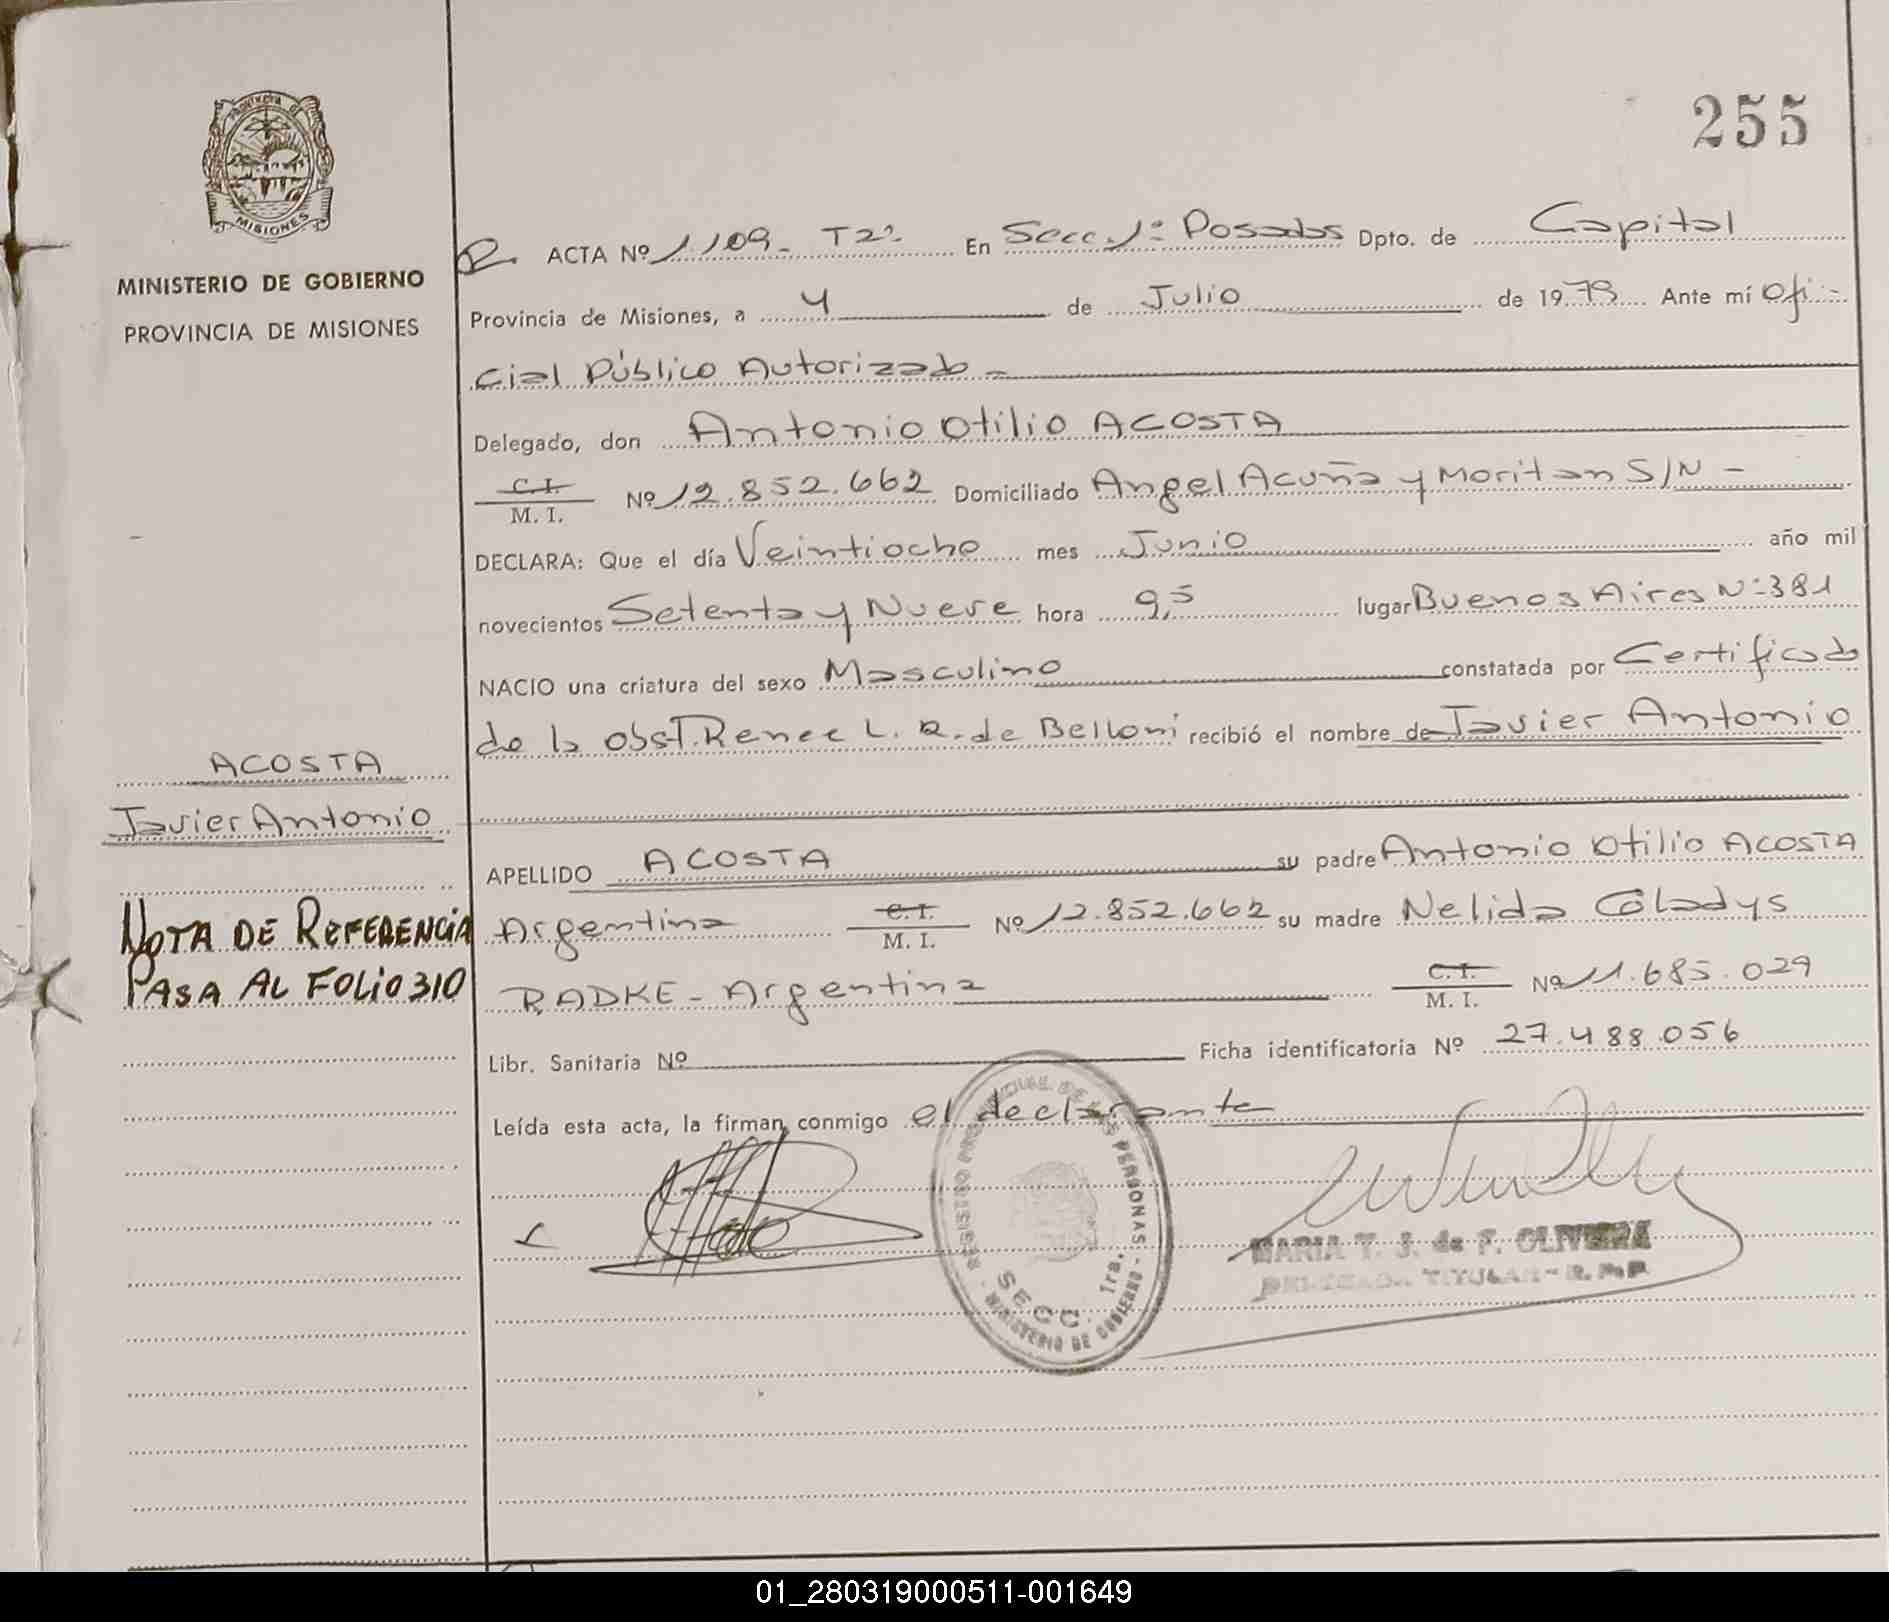 255
PROVINCIA DE
MISIONES
MINISTERIO DE GOBIERNO
PROVINCIA DE MISIONES
ACTA Nº 1109 - T2º En Secc. 1º Posadas Dpto. de Capital
Provincia de Misiones, a 4 de Julio de 1979 Ante mí Ofi-
cial Público Autorizado -
Delegado, don Antonio Otilio ACOSTA
C.I.
M. I. Nº 12.852.662 Domiciliado Angel Acuña y Moritan S/N -
DECLARA: Que el día Veintiocho mes Junio año mil
novecientos Setenta y Nueve hora 9,5 lugar Buenos Aires Nº 381
NACIO una criatura del sexo Masculino constatada por Certificado
de la obst. Renee L. R. de Belloni recibió el nombre de Javier Antonio
ACOSTA
Javier Antonio
APELLIDO ACOSTA su padre Antonio Otilio ACOSTA
NOTA DE REFERENCIA
PASA AL FOLIO 310
Argentina C.I. M. I. Nº 12.852.662 su madre Nelida Gladys
RADKE - Argentina C.I. M. I. Nº 11.685.029
Libr. Sanitaria Nº Ficha identificatoria Nº 27.488.056
Leída esta acta, la firman conmigo el declarante
REGISTRO PROVINCIAL DE LAS PERSONAS - MINISTERIO DE GOBIERNO -
SECC. 1ra.
MARIA T. J. de F. OLIVEIRA
TITULAR - R. P. P.
01_280319000511-001649